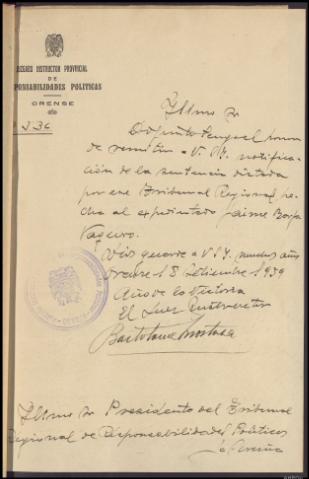 JUZGADO INSTRUCTOR PROVINCIAL
DE
RESPONSABILIDADES POLITICAS
ORENSE
Iltmo Sr
Adjunto tengo el honor
de remitir a V.S.I. notifica-
ción de la sentencia dictada
por ese Tribunal Regional, he-
cha al expedientado Jaime Borja
Vaquero.
Dios guarde a V.S.I. muchos años
Orense 18 Setiembre 1939
Año de la Victoria
El Juez Instructor
Bartolomé
Iltmo Sr Presidente del Tribunal
Regional de Responsabilidades Politicas
La Coruña